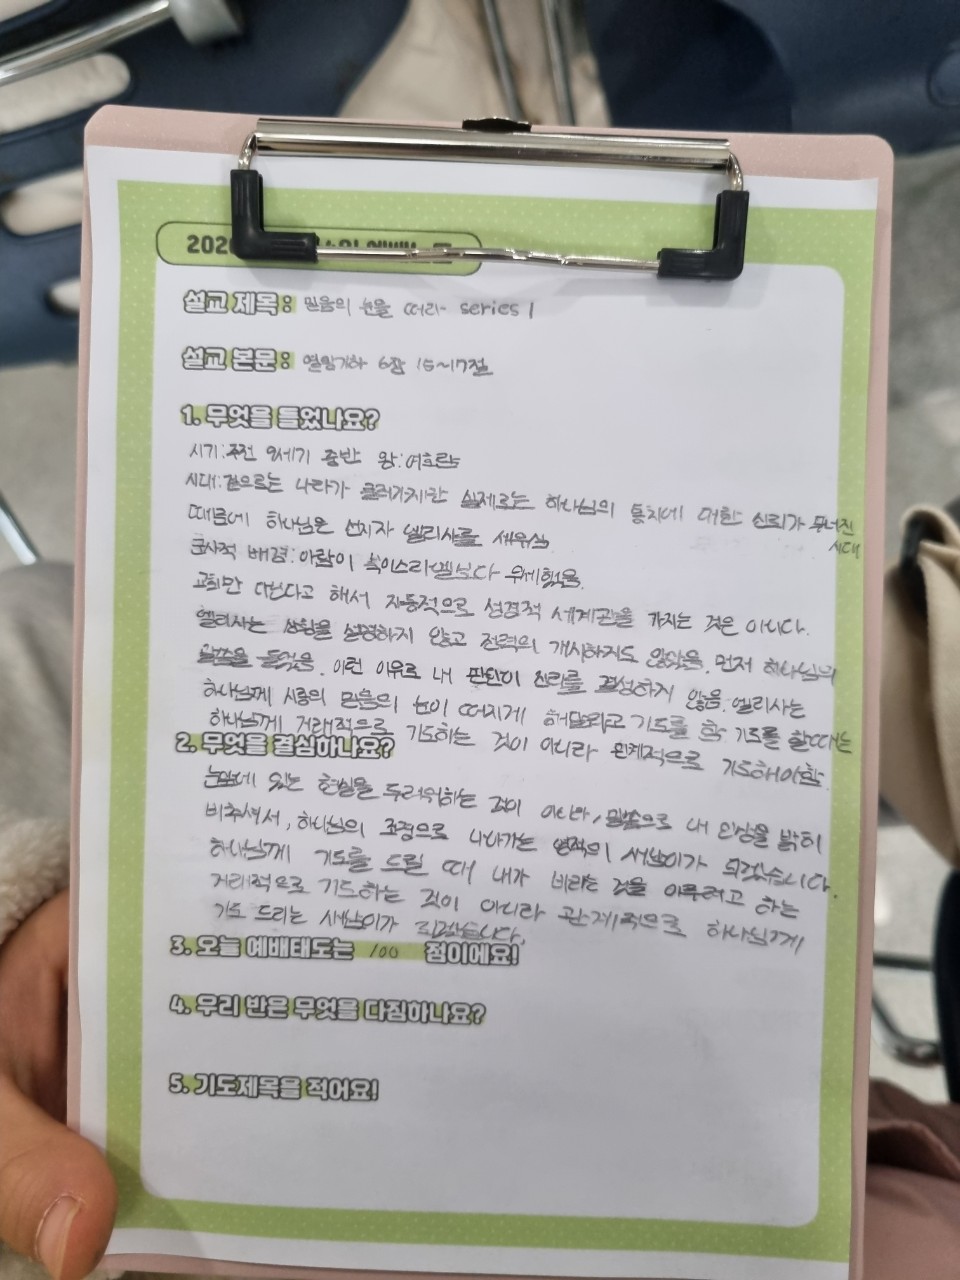 설교 제목: 믿음의 눈을 떠라- series 1
설교 본문: 열왕기하 6장 15~17절
1. 무엇을 들었나요?
시기: 주전 9세기 중반 왕: 여호람
시대: 겉으로는 나라가 굴러가지만 실제로는 하나님의 통치에 대한 신뢰가 무너진
시대
때문에 하나님은 선지자 엘리사를 세우심
군사적 배경: 아람이 북이스라엘보다 우세했음.
교회만 다닌다고 해서 자동적으로 성경적 세계관을 가지는 것은 아니다.
엘리사는 상황을 설명하지 않고 전력의 개시하지도 않았음. 먼저 하나님의
말씀을 들었음. 이런 이유로 내 판단이 진리를 결성하지 않음. 엘리사는
하나님께 시종의 믿음의 눈이 떠지게 해달라고 기도를 함 기도를 할때는
하나님께 거래적으로 기도하는 것이 아니라 관계적으로 기도해야함.
2. 무엇을 결심하나요?
눈앞에 있는 현실을 두려워하는 것이 아니라, 말씀으로 내 인상을 밝히
비추셔서, 하나님의 조정으로 나아가는 영적의 새남이가 되겠습니다.
하나님께 기도를 드릴 때 내가 바라는 것을 이루려고 하는
거래적으로 기도하는 것이 아니라 관계적으로 하나님께
기도 드리는 새남이가 되겠습니다.
3. 오늘 예배태도는 100 점이에요!
4. 우리 반은 무엇을 다짐하나요?
5. 기도제목을 적어요!